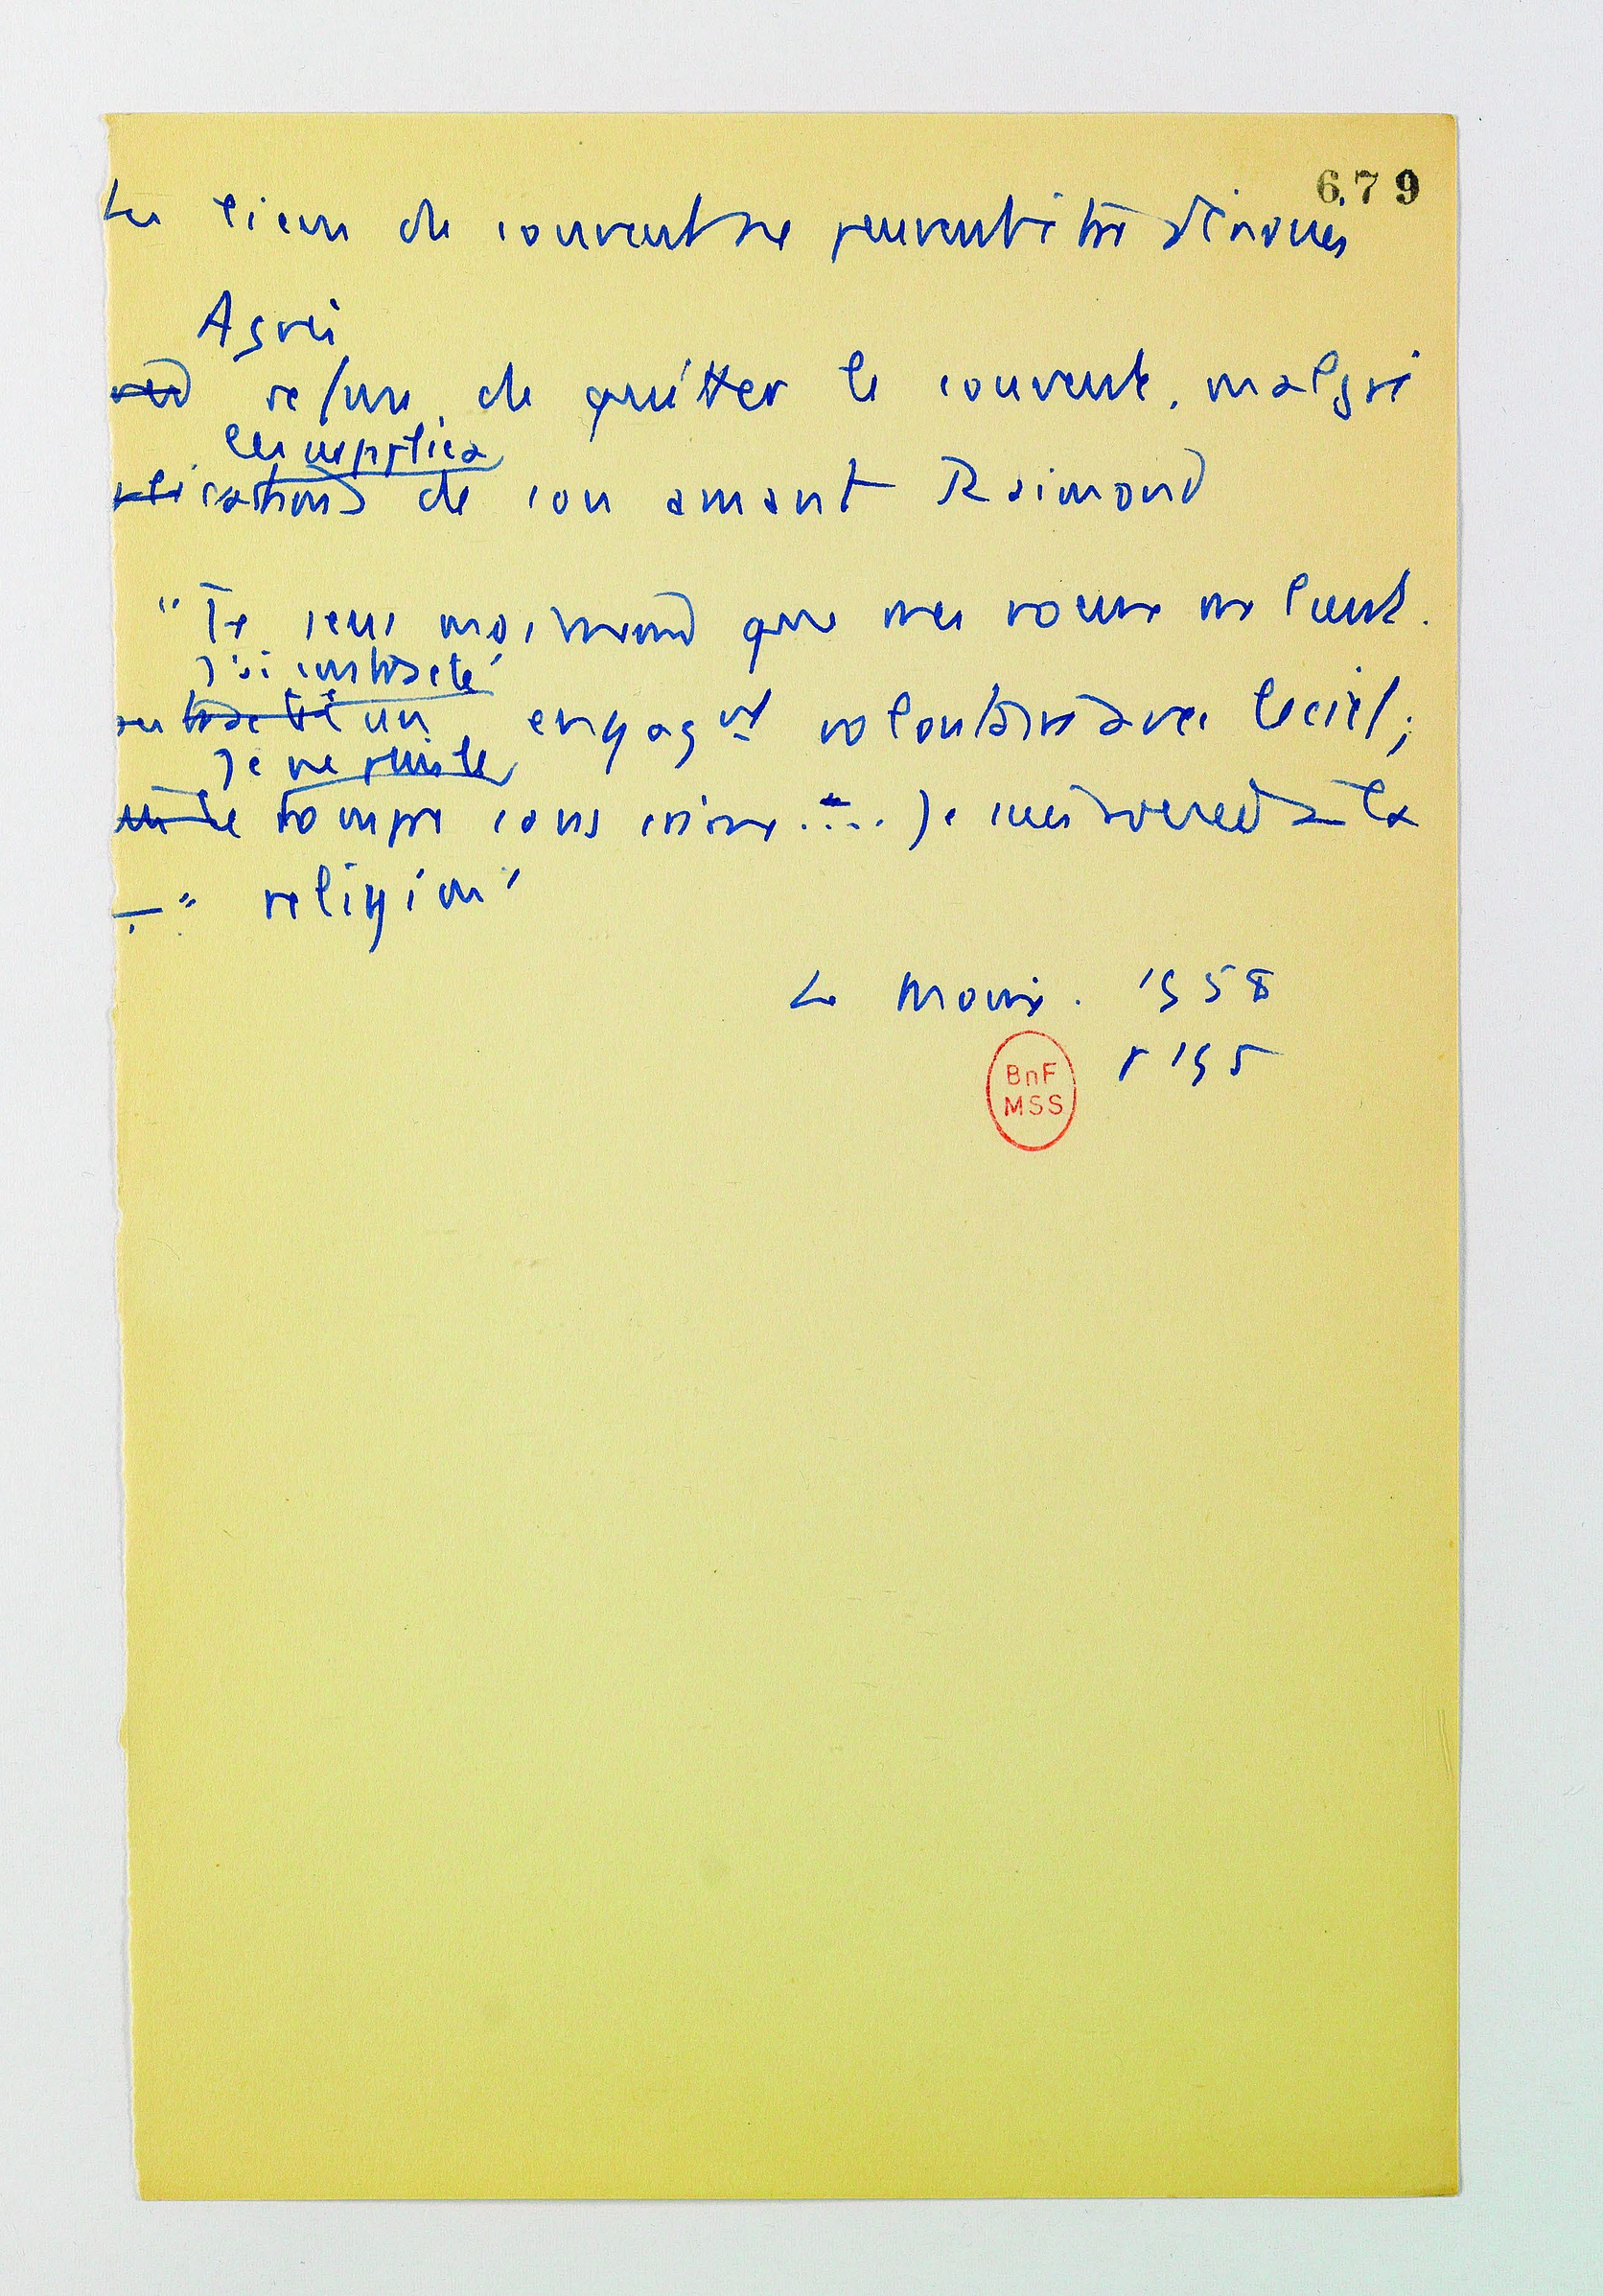 679
Les liens du couvent ne peuvent être dénoués
Agnès
refuse de quitter le couvent, malgré
les supplica
plications de son amant Raimond
"Je sens maintenant que mes vœux me lient.
J'ai contracté
un engagt volontaire avec le ciel;
Je ne puis le
rompre sans crime..... Je suis vouée à la
religion"
Le Moine. 1958
p 195
BnF
MSS